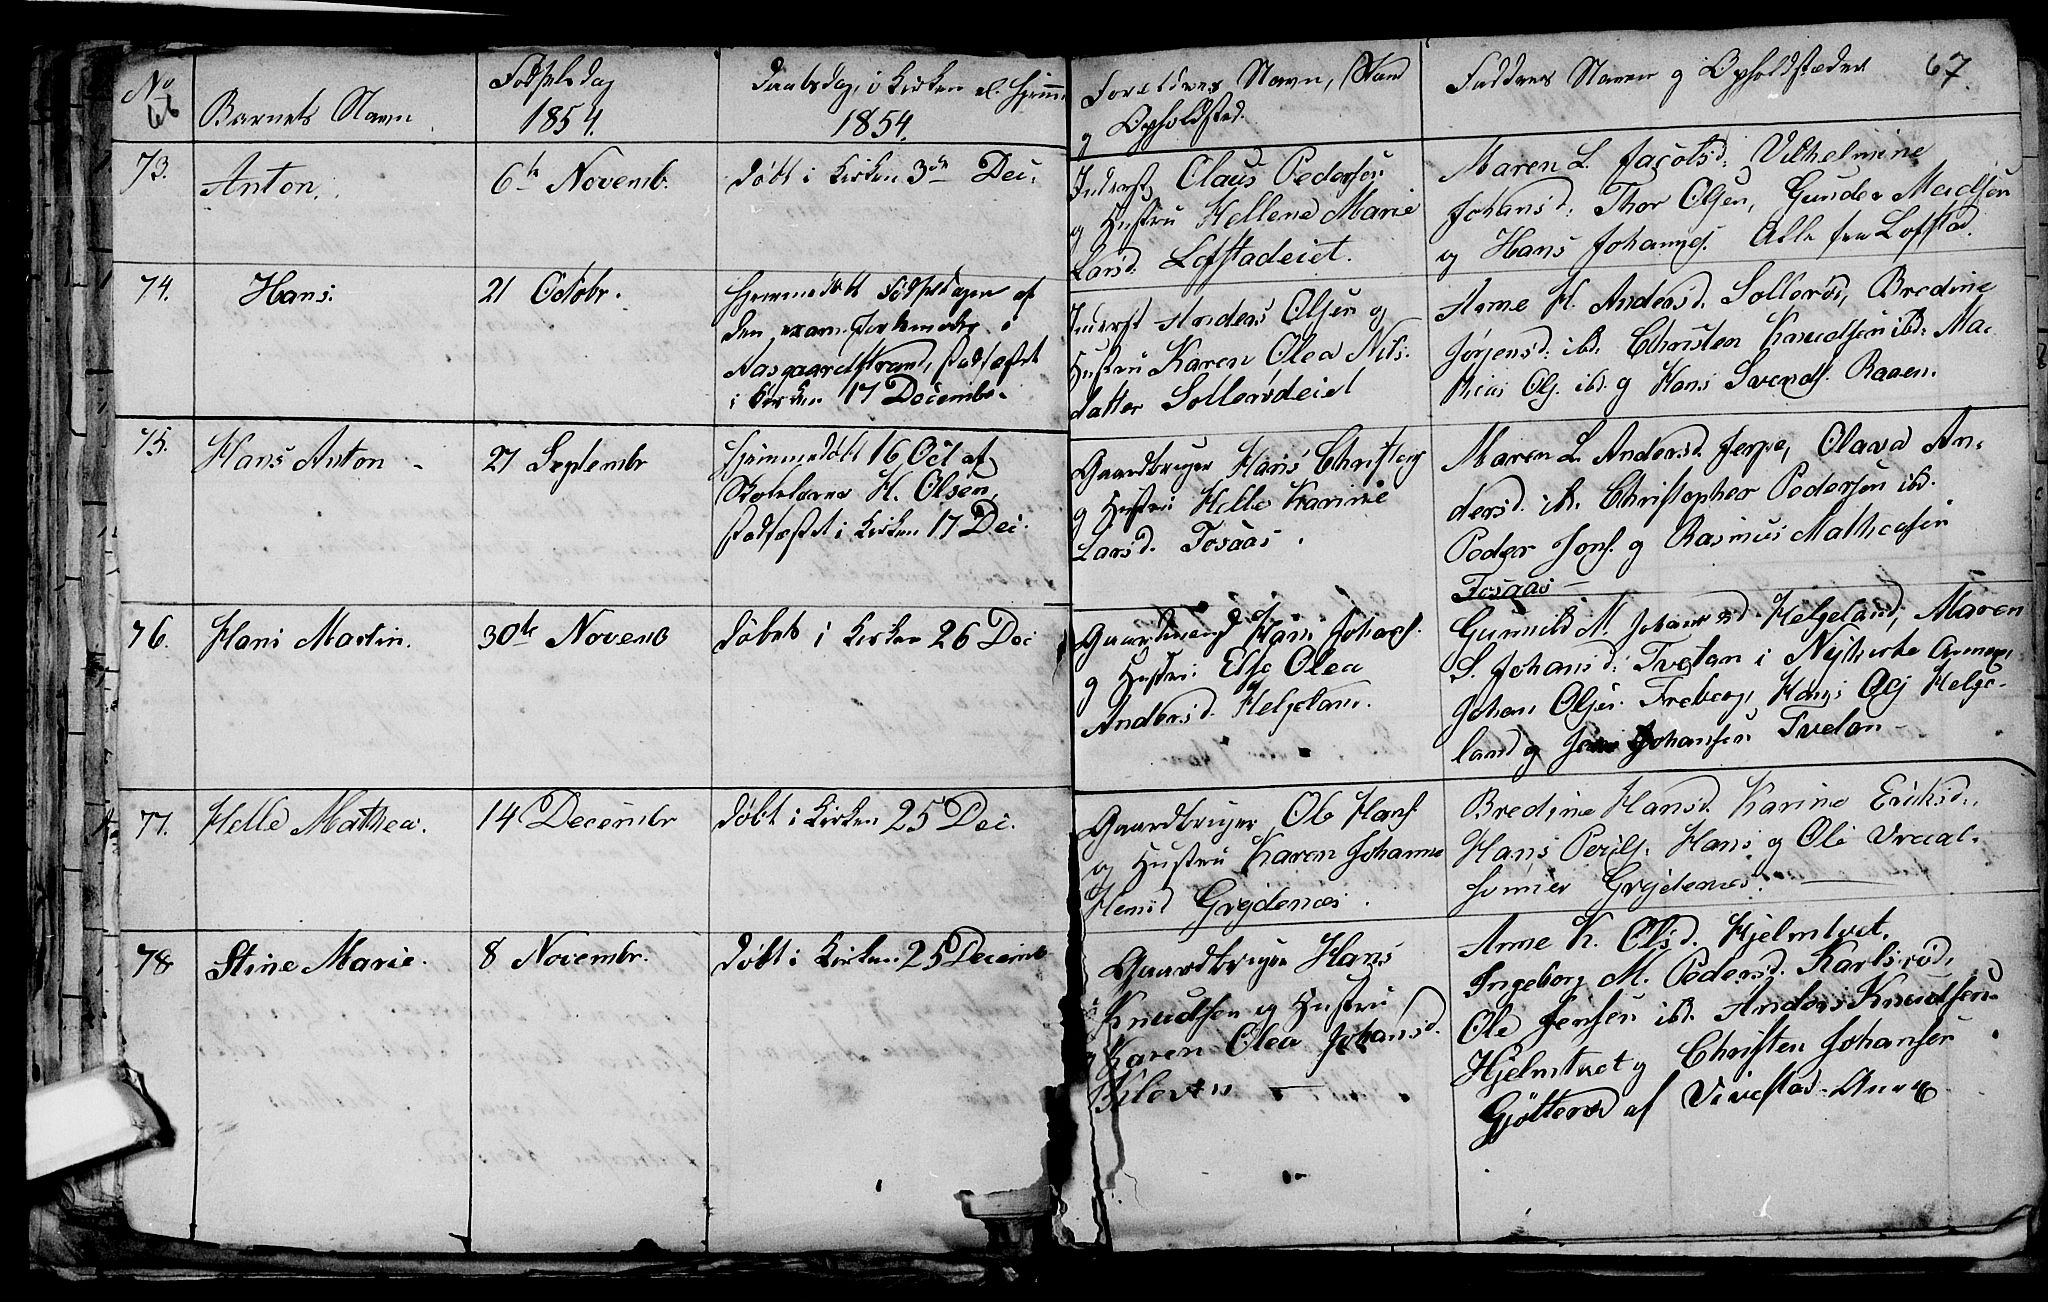 No
66
Barnets Navn
Fødselsdag
1854.
Daabsdag, i Kirken el. Hjem̄e
1854.
Forældres Navn, Stand
og Opholdsted.
Faddres Navn og Opholdsteder
67.
73.
Anton.
6te Novemb.
døbt i Kirken 3de Dec.
Inderst Claus Pedersen
og Hustru Hellene Marie
Larsd. Lofstadeiet.
Maren L. Jacobsd: Vilhelmine
Johansd: Thor Olsen, Gunder Madsen
og Hans Johannes. Alle fra Lofstad.
74.
Hans.
21 Octobr.
Hjemmedøbt Fødselsdagen af
den exam. Jordemoder i
Aasgaardstrand, stadfæstet
i Kirken 17 Decembr.
Inderst Anders Olsen og
Hustru Karen Olea Nils-
datter Sollerødeiet
Anne H. Andersd. Sollerød, Bredine
Jørjensd. ibd. Christen Knudsen ibd. Ma-
thias Ols. ibd. og Hans Svends. Raaen.
75.
Hans Anton
27 Septembr
Hjemmedøbt 16 Oct af
Skolelærer H. Olsen,
stadfæstet i Kirken 17 Dec.
Gaardbruger Hans Christens
og Hustru Helle Karine
Larsd. Fosaas.
Maren L. Andersd. Jerpe, Olava An-
dersd. ib. Christopher Pedersen ibd.
Peder Jons. og Rasmus Matheasen
Fosaas
76.
Hans Martin.
30te Novemb
døbt i Kirken 26 Dec
Hans Johans.
og Hustru Else Olea
Andersd. Helgeland.
Gunnild M. Johansd. Helgeland, Maren
S. Johansd: Tvetan i Nykirke Annex,
Johan Olsen Freberg, Hans Ols Helge-
land og Johansen Tvetan
77.
Helle Mathea.
14 Decembr
døbt i Kirken 25 Dec.
Gaardbruger Ole Hans.
og Hustru Karen Johanne
Hansd Grydenæs.
Bredine Hansd. Karine Eriksd.,
Hans Hans og Ole
Grydenæs.
78
Stine Marie.
8 Novembr.
døbt i Kirken 25 Decemb
Gaardbruger Hans
Knudsen og Hustru
Karen Olea Johansd.
Anne K. Olsd. Hjelmtvet,
Ingeborg M. Pedersd. Karlsrød,
Ole Jensen ibd. Anders Knudsen
Hjelmtvet og Christen Johansen
Gjøtterød af Vivestad-Annex